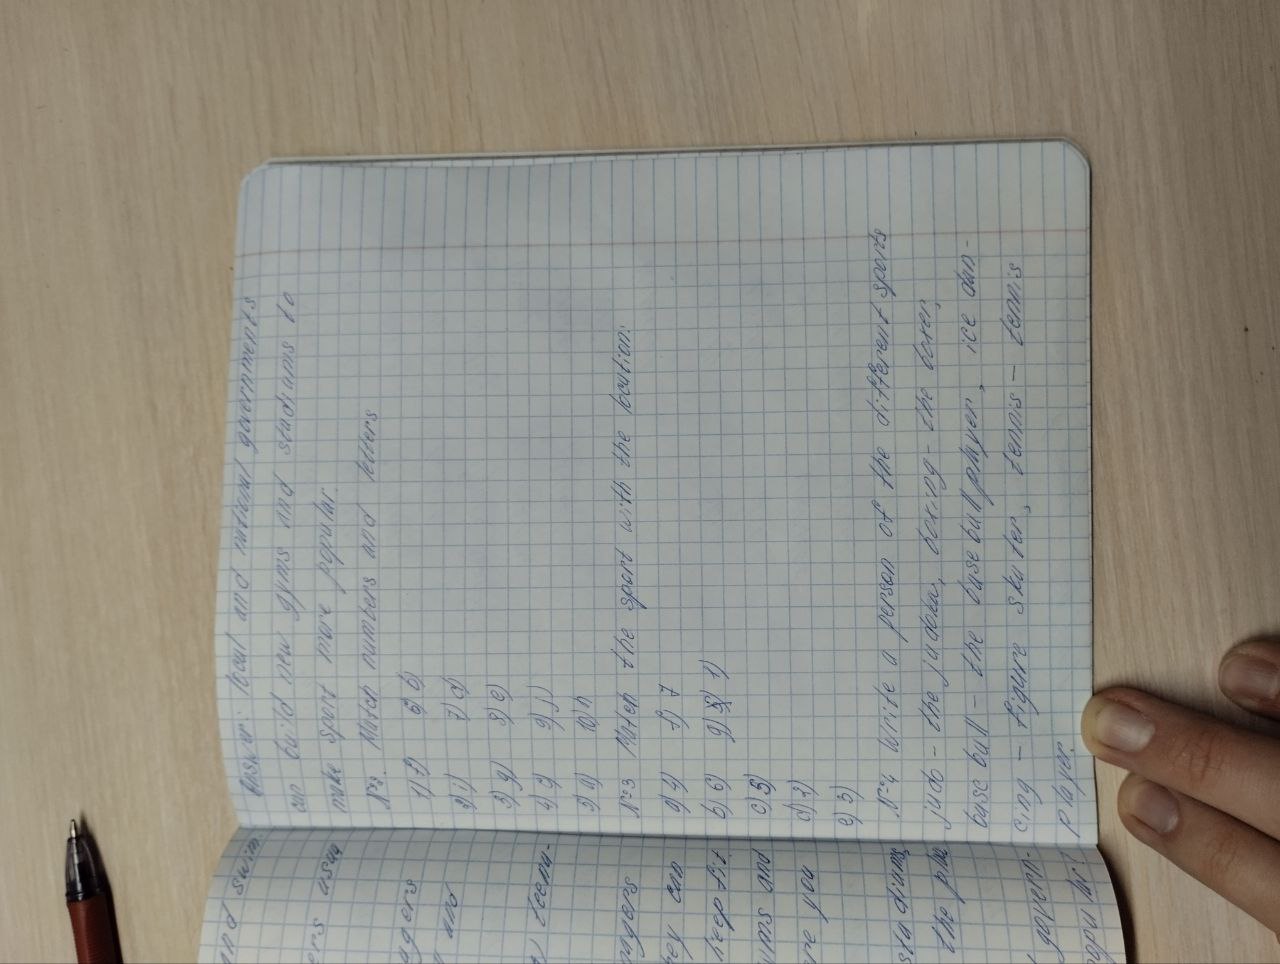 Answer: local and national governments
can build new gyms and stadiums to
make sport more popular.
Match numbers and letters
1) f) 6) b)
2) i) 7) d)
3) g) 8) e)
4) 9) j)
5) a) 10) h
N=3 Match the sport with the location:
a) 4) f) 7
b) 6) g) 1)
c) 5)
d) 2)
e) 3)
N=4 Write a person of the different sports
judo - the judoka, boxing - the boxer,
baseball - the baseball player, ice dan-
cing - figure skater, tennis - tennis
player.
and swim
ers usua
agers
and
teena-
nagers
hey can
keep fit
yms and
re you
stadiums
the pla
govern-
popular?